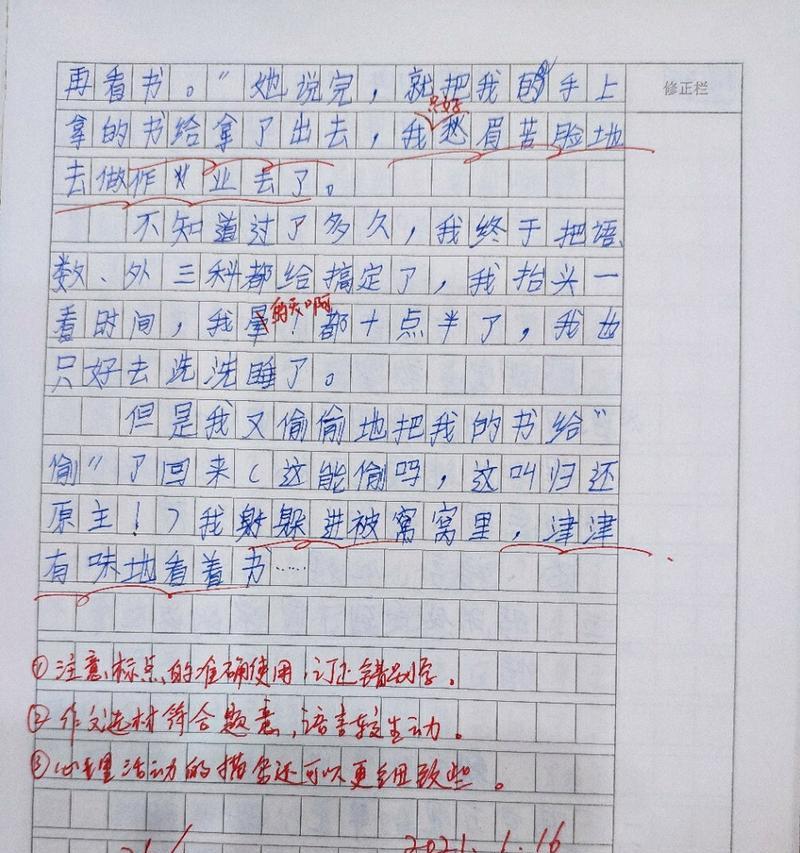 修正栏
再看书。”她说完，就把我的手上
只好
拿的书给拿了出去，我愁眉苦脸地
去做作业去了。
不知道过了多久，我终于把语、
数、外三科都给搞定了，我抬头一
的天啊
看时间，我晕！都十点半了，我也
只好去洗洗睡了。
但是我又偷偷地把我的书给“
偷”了回来（这能偷吗，这叫归还
原主！）我躲进被窝窝里，津津
有味地看着书……
①注意标点的准确使用，订正错别字。
②作文选材符合题意，语言较生动。
③心理活动的描写还可以更细致些。
2021.1.16